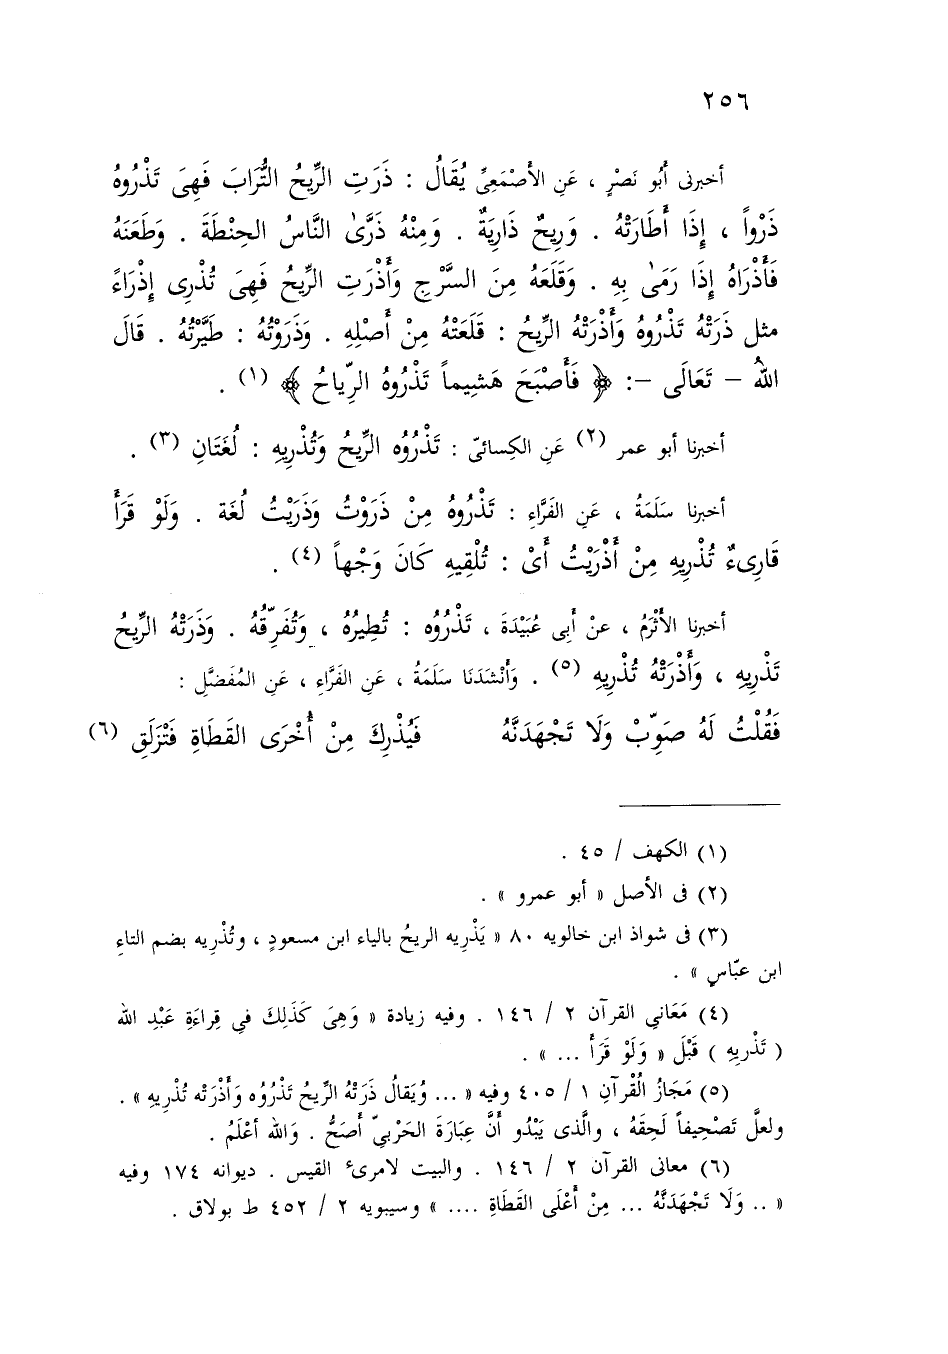 ٢٥٦
أخبرنى أَبُو نَصْرٍ ، عَنِ الأَصْمَعِىِّ يُقَالُ : ذَرَتِ الرِّيحُ التُّرَابَ فَهِىَ تَذْرُوهُ
ذَرْواً ، إِذَا أَطَارَتْهُ . وَرِيحٌ ذَارِيَةٌ . وَمِنْهُ ذَرَّىٰ النَّاسُ الحِنْطَةَ . وَطَعَنَهُ
فَأَذْرَاهُ إِذَا رَمَىٰ بِهِ . وَقَلَعَهُ مِنَ السَّرْجِ وَأَذْرَتِ الرِّيحُ فَهِىَ تُذْرِى إِذْرَاءً
مثل ذَرَتْهُ تَذْرُوهُ وَأَذْرَتْهُ الرِّيحُ : قَلَعَتْهُ مِنْ أَصْلِهِ . وَذَرَوْتُهُ : طَيَّرْتُهُ . قَالَ
اللهُ – تَعَالَى –: ﴿ فَأَصْبَحَ هَشِيماً تَذْرُوهُ الرِّياحُ ﴾ (١) .
أخبرنا أبو عمر (٢) عَنِ الكِسائىّ : تَذْرُوُه الرِّيحُ وَتُذْرِيهِ : لُغَتَانِ (٣) .
أخبرنا سَلَمَةُ ، عَنِ الفَرَّاءِ : تَذْرُوهُ مِنْ ذَرَوْتُ وَذَرَيْتُ لُغَة . وَلَوْ قَرَأَ
قَارِىءٌ تُذْرِيهِ مِنْ أَذْرَيْتُ أَىْ : تُلْقِيهِ كَانَ وَجْهاً (٤) .
أخبرنا الأَثْرَمُ ، عنْ أَبِى عُبَيْدَةَ ، تَذْرُوُه : تُطِيرُهُ ، وَتُفَرِّقُهُ . وَذَرَتْهُ الرِّيحُ
تَذْرِيهِ ، وَأَذْرَتْهُ تُذْرِيهِ (٥) . وَأَنْشَدَنَا سَلَمَةُ ، عَنِ الفَرَّاءِ ، عَنِ المُفَضَّلِ :
فَقُلْتُ لَهُ صَوِّبْ وَلَا تَجْهَدَنَّهُ فَيُذْرِكَ مِنْ أُخْرَى القَطَاةِ فَتَزْلَقِ (٦)
(١) الكهف / ٤٥ .
(٢) فى الأصل « أبو عمرو » .
(٣) فى شواذ ابن خالويه ٨٠ « يَذْرِيه الريحُ بالياء ابن مسعودٍ ، وتُذْرِيه بضم التاءِ
ابن عبّاسٍ » .
(٤) مَعَانى القرآن ٢ / ١٤٦ . وفيه زيادة « وَهِىَ كَذَلِكَ فى قِراءَةِ عَبْدِ الله
( تَذْرِيهِ ) قَبْلَ « وَلَوْ قَرَأَ ... » .
(٥) مَجَازُ الْقُرْآنِ ١ / ٤٠٥ وفيه « ... وُيَقالُ ذَرَتْهُ الرِّيحُ تَذْرُوُه وَأَذْرَتْه تُذْرِيهِ » .
ولعلَّ تَصْحِيفاً لَحِقَهُ ، والَّذى يَبْدُو أَنَّ عِبَارَةَ الحَرْبىِّ أَصَحُّ . وَالله أَعْلَمُ .
(٦) معانى القرآن ٢ / ١٤٦ . والبيت لامرىء القيس . ديوانه ١٧٤ وفيه
« .. وَلَا تَجْهَدَنَّهُ ... مِنْ أَعْلَى القَطَاةِ .... » وسيبويه ٢ / ٤٥٢ ط بولاق .